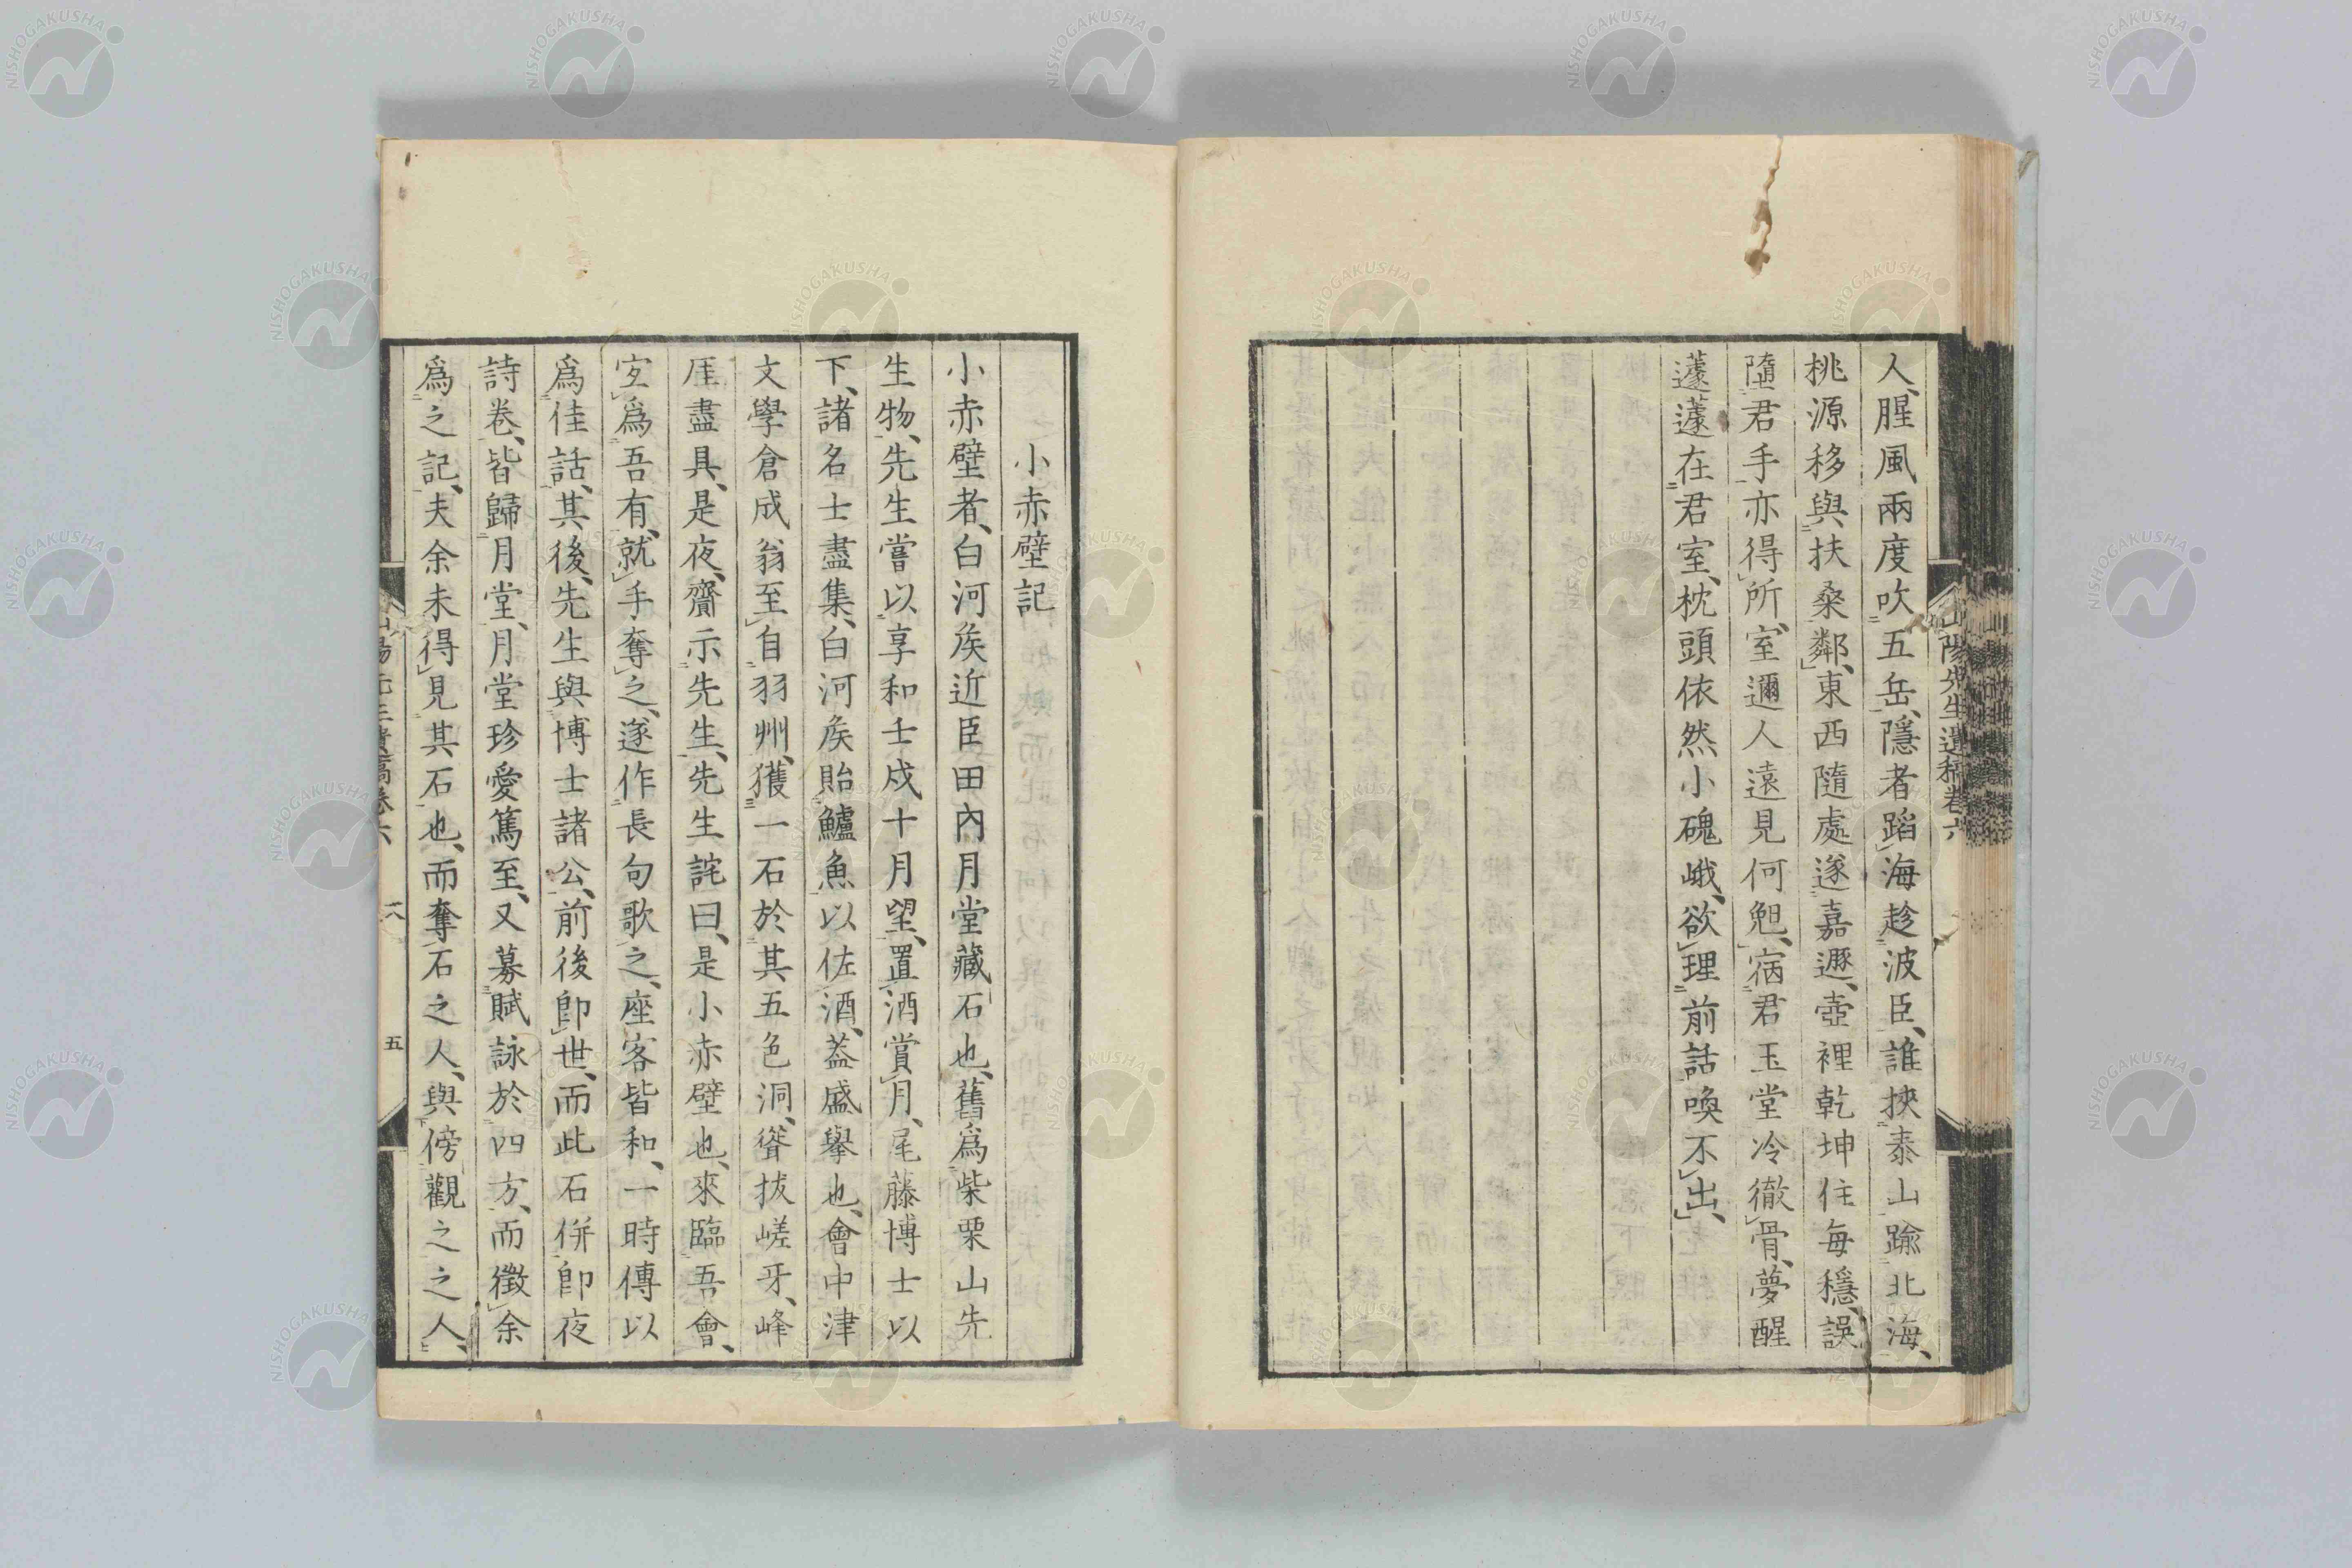 人、腥風兩度吹五岳、隱者蹈海趁波臣、誰挾泰山踰北海、
桃源移與扶桑鄰、東西隨處遂嘉遯、壺裡乾坤住每穩、誤
墮君手亦得所、室邇人遠見何𠒎、病君玉堂冷徹骨、夢醒
蘧蘧在君室、枕頭依然小磈峨、欲理前話喚不出、
山陽先生遺稿卷六
小赤壁記
小赤壁者、白河矦近臣田內月堂藏石也、舊爲柴栗山先
生物、先生嘗以享和壬戍十月望、置酒賞月、尾藤博士以
下、諸名士盡集、白河矦貽鱸魚以佐酒、葢盛擧也、會中津
文學倉成翁至自羽州、獲一石於其五色洞、聳拔嵯牙、峰
厓盡具、是夜、齎示先生、先生詫曰、是小赤壁也、來臨吾會、
宐爲吾有、就手奪之、遂作長句歌之、座客皆和、一時傳以
爲佳話、其後、先生與博士諸公、前後卽世、而此石併卽夜
詩卷、皆歸月堂、月堂珍愛篤至、又募賦詠於四方、而徵余
爲之記、夫余未得見其石也、而奪石之人、與傍觀之之人、
五
NISHOGAKUSHA